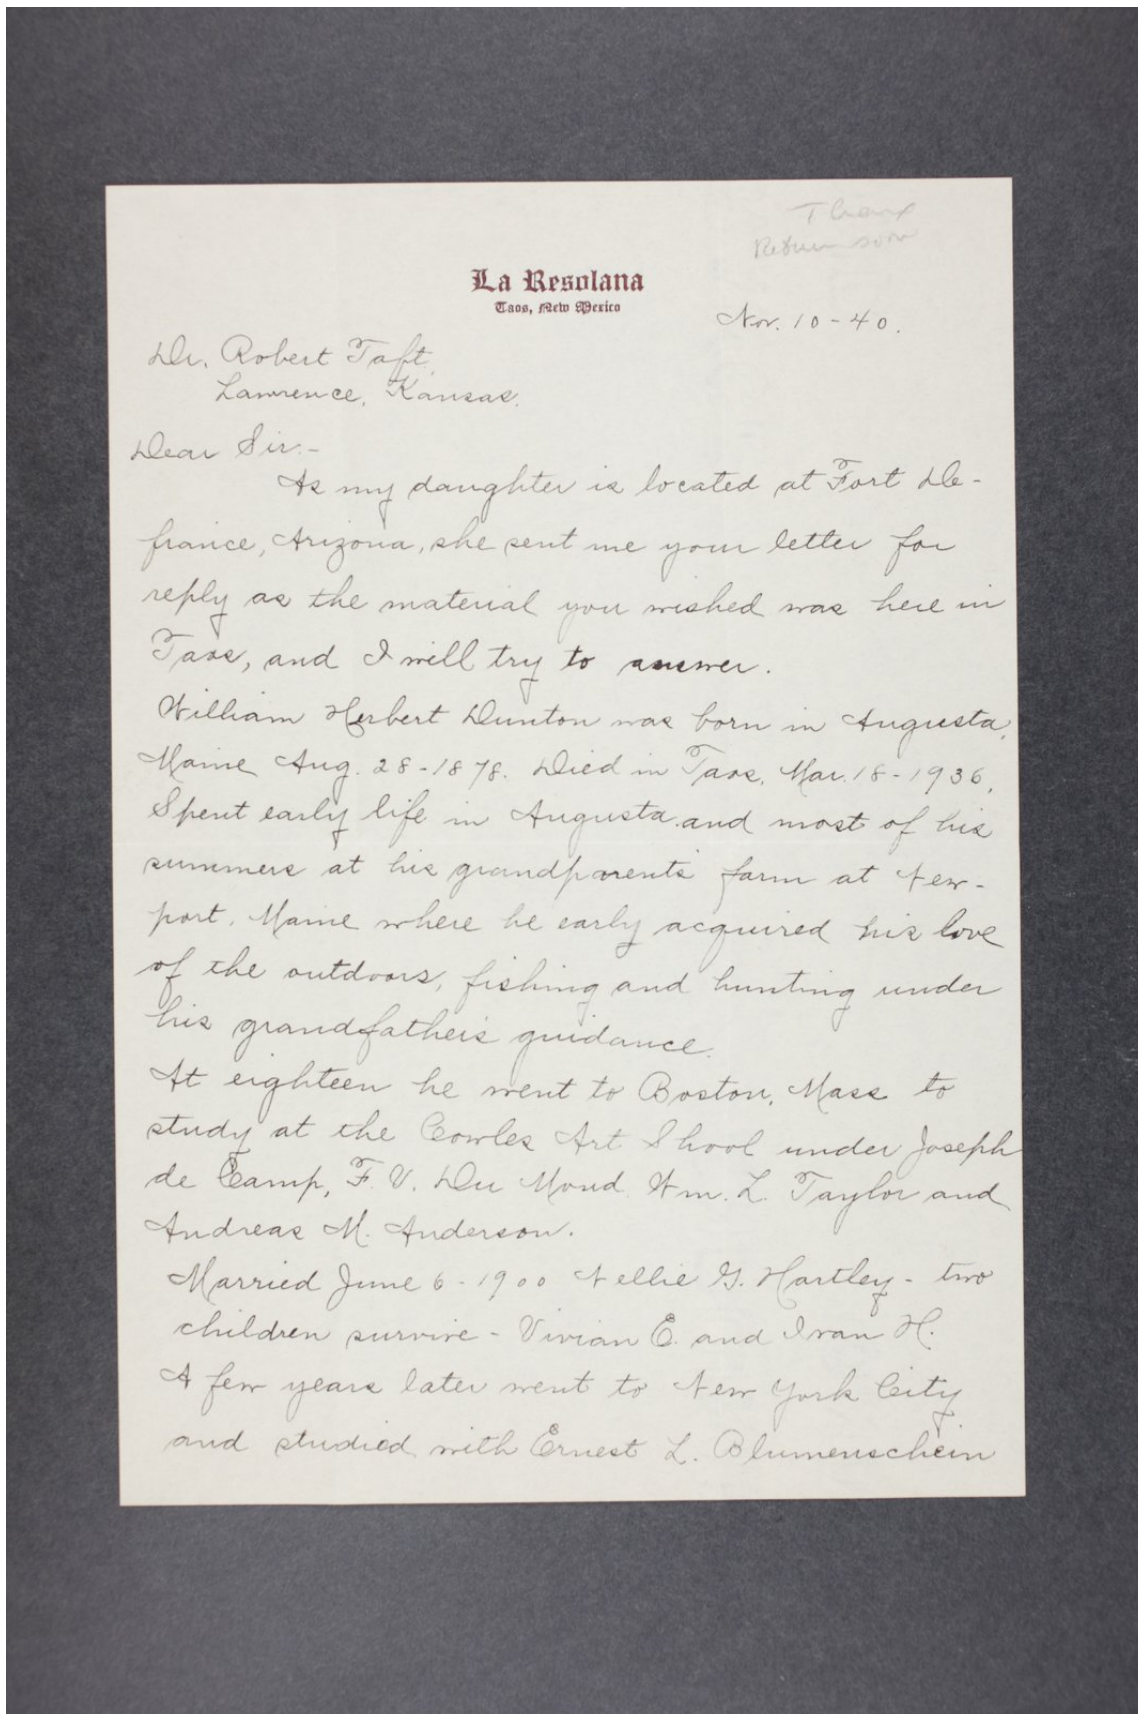 Thank
Return soon
La Resolana
Taos, New Mexico
Nov. 10 - 40.
Dr. Robert Taft,
Lawrence, Kansas.
Dear Sir.-
As my daughter is located at Fort De-
fiance, Arizona, she sent me your letter for
reply as the material you wished was here in
Taos, and I will try to answer.
William Herbert Dunton was born in Augusta,
Maine Aug. 28 - 1878. Died in Taos, Mar. 18 - 1936.
Spent early life in Augusta and most of his
summers at his grandparents farm at New-
port, Maine where he early acquired his love
of the outdoors, fishing and hunting under
his grandfather's guidance.
At eighteen he went to Boston, Mass to
study at the Cowles Art Shool under Joseph
de Camp, F. V. Du Mond, Wm. L. Taylor and
Andreas M. Anderson.
Married June 6 - 1900 Nellie G. Hartley - two
children survive - Vivian E. and Ivan H.
A few years later went to New York City
and studied with Ernest L. Blumenschein